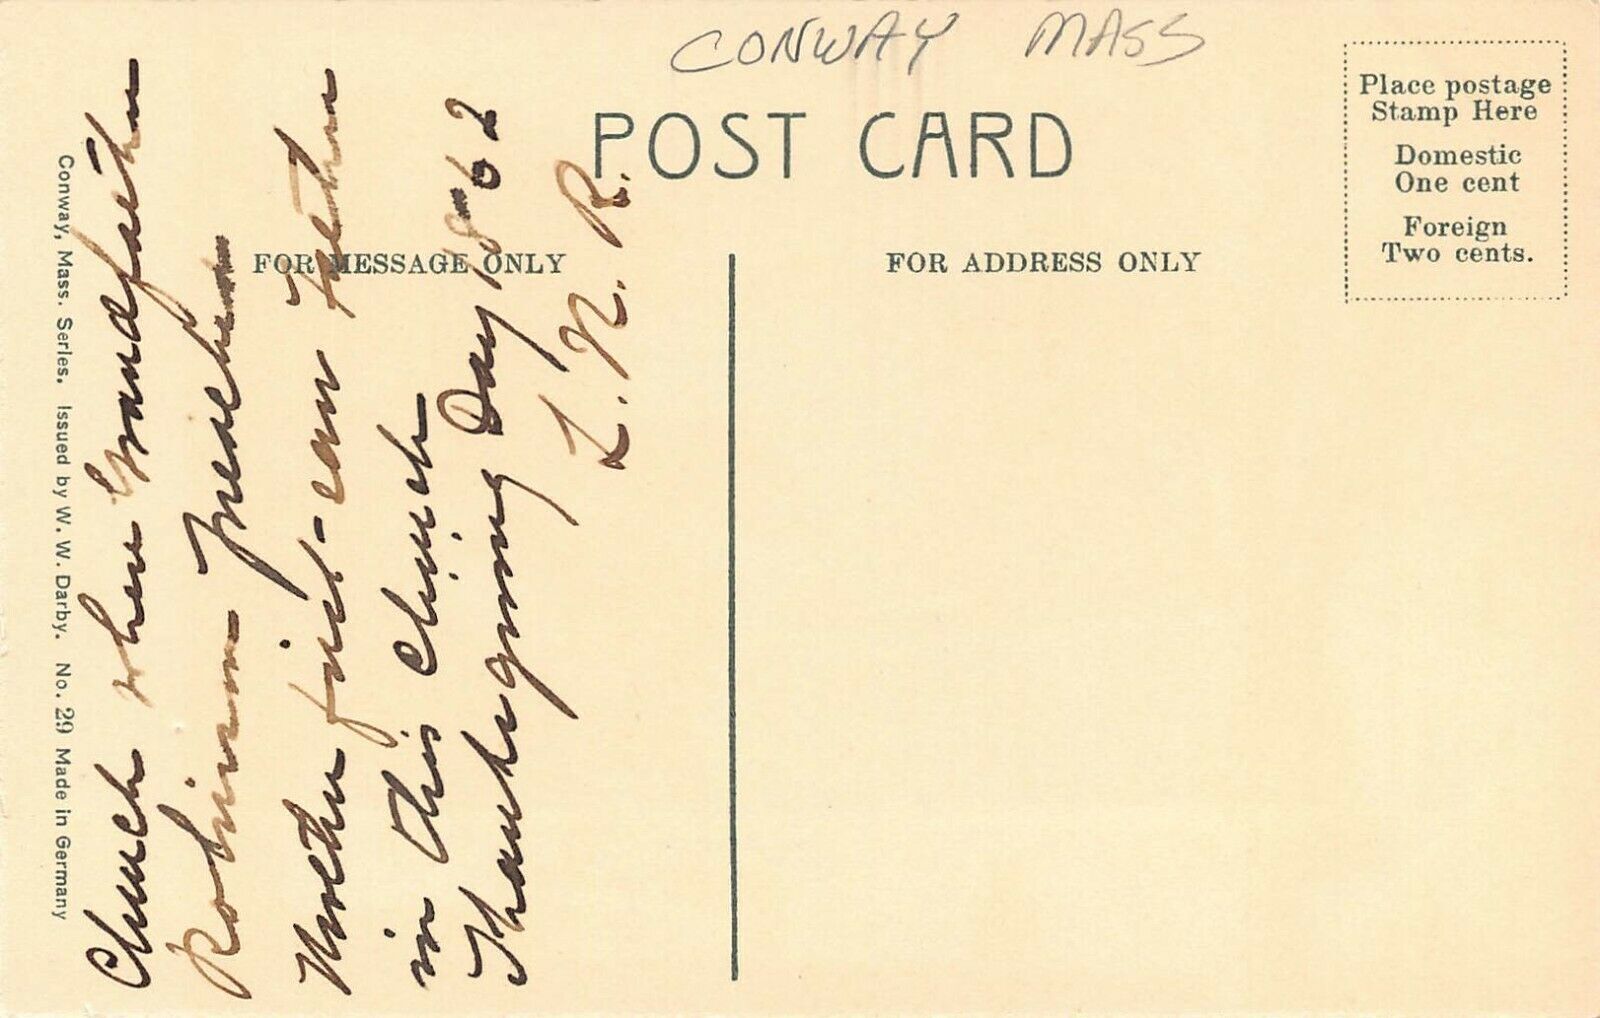 CONWAY MASS
POST CARD
Place postage
Stamp Here
Domestic
One cent
Foreign
Two cents.
FOR MESSAGE ONLY
FOR ADDRESS ONLY
Conway, Mass. Series. Issued by W. W. Darby. No. 29 Made in Germany
Church where Grandfather
Robinson preached
Mother first saw Father
in this church
Thanksgiving Day 1862
L. N. R.